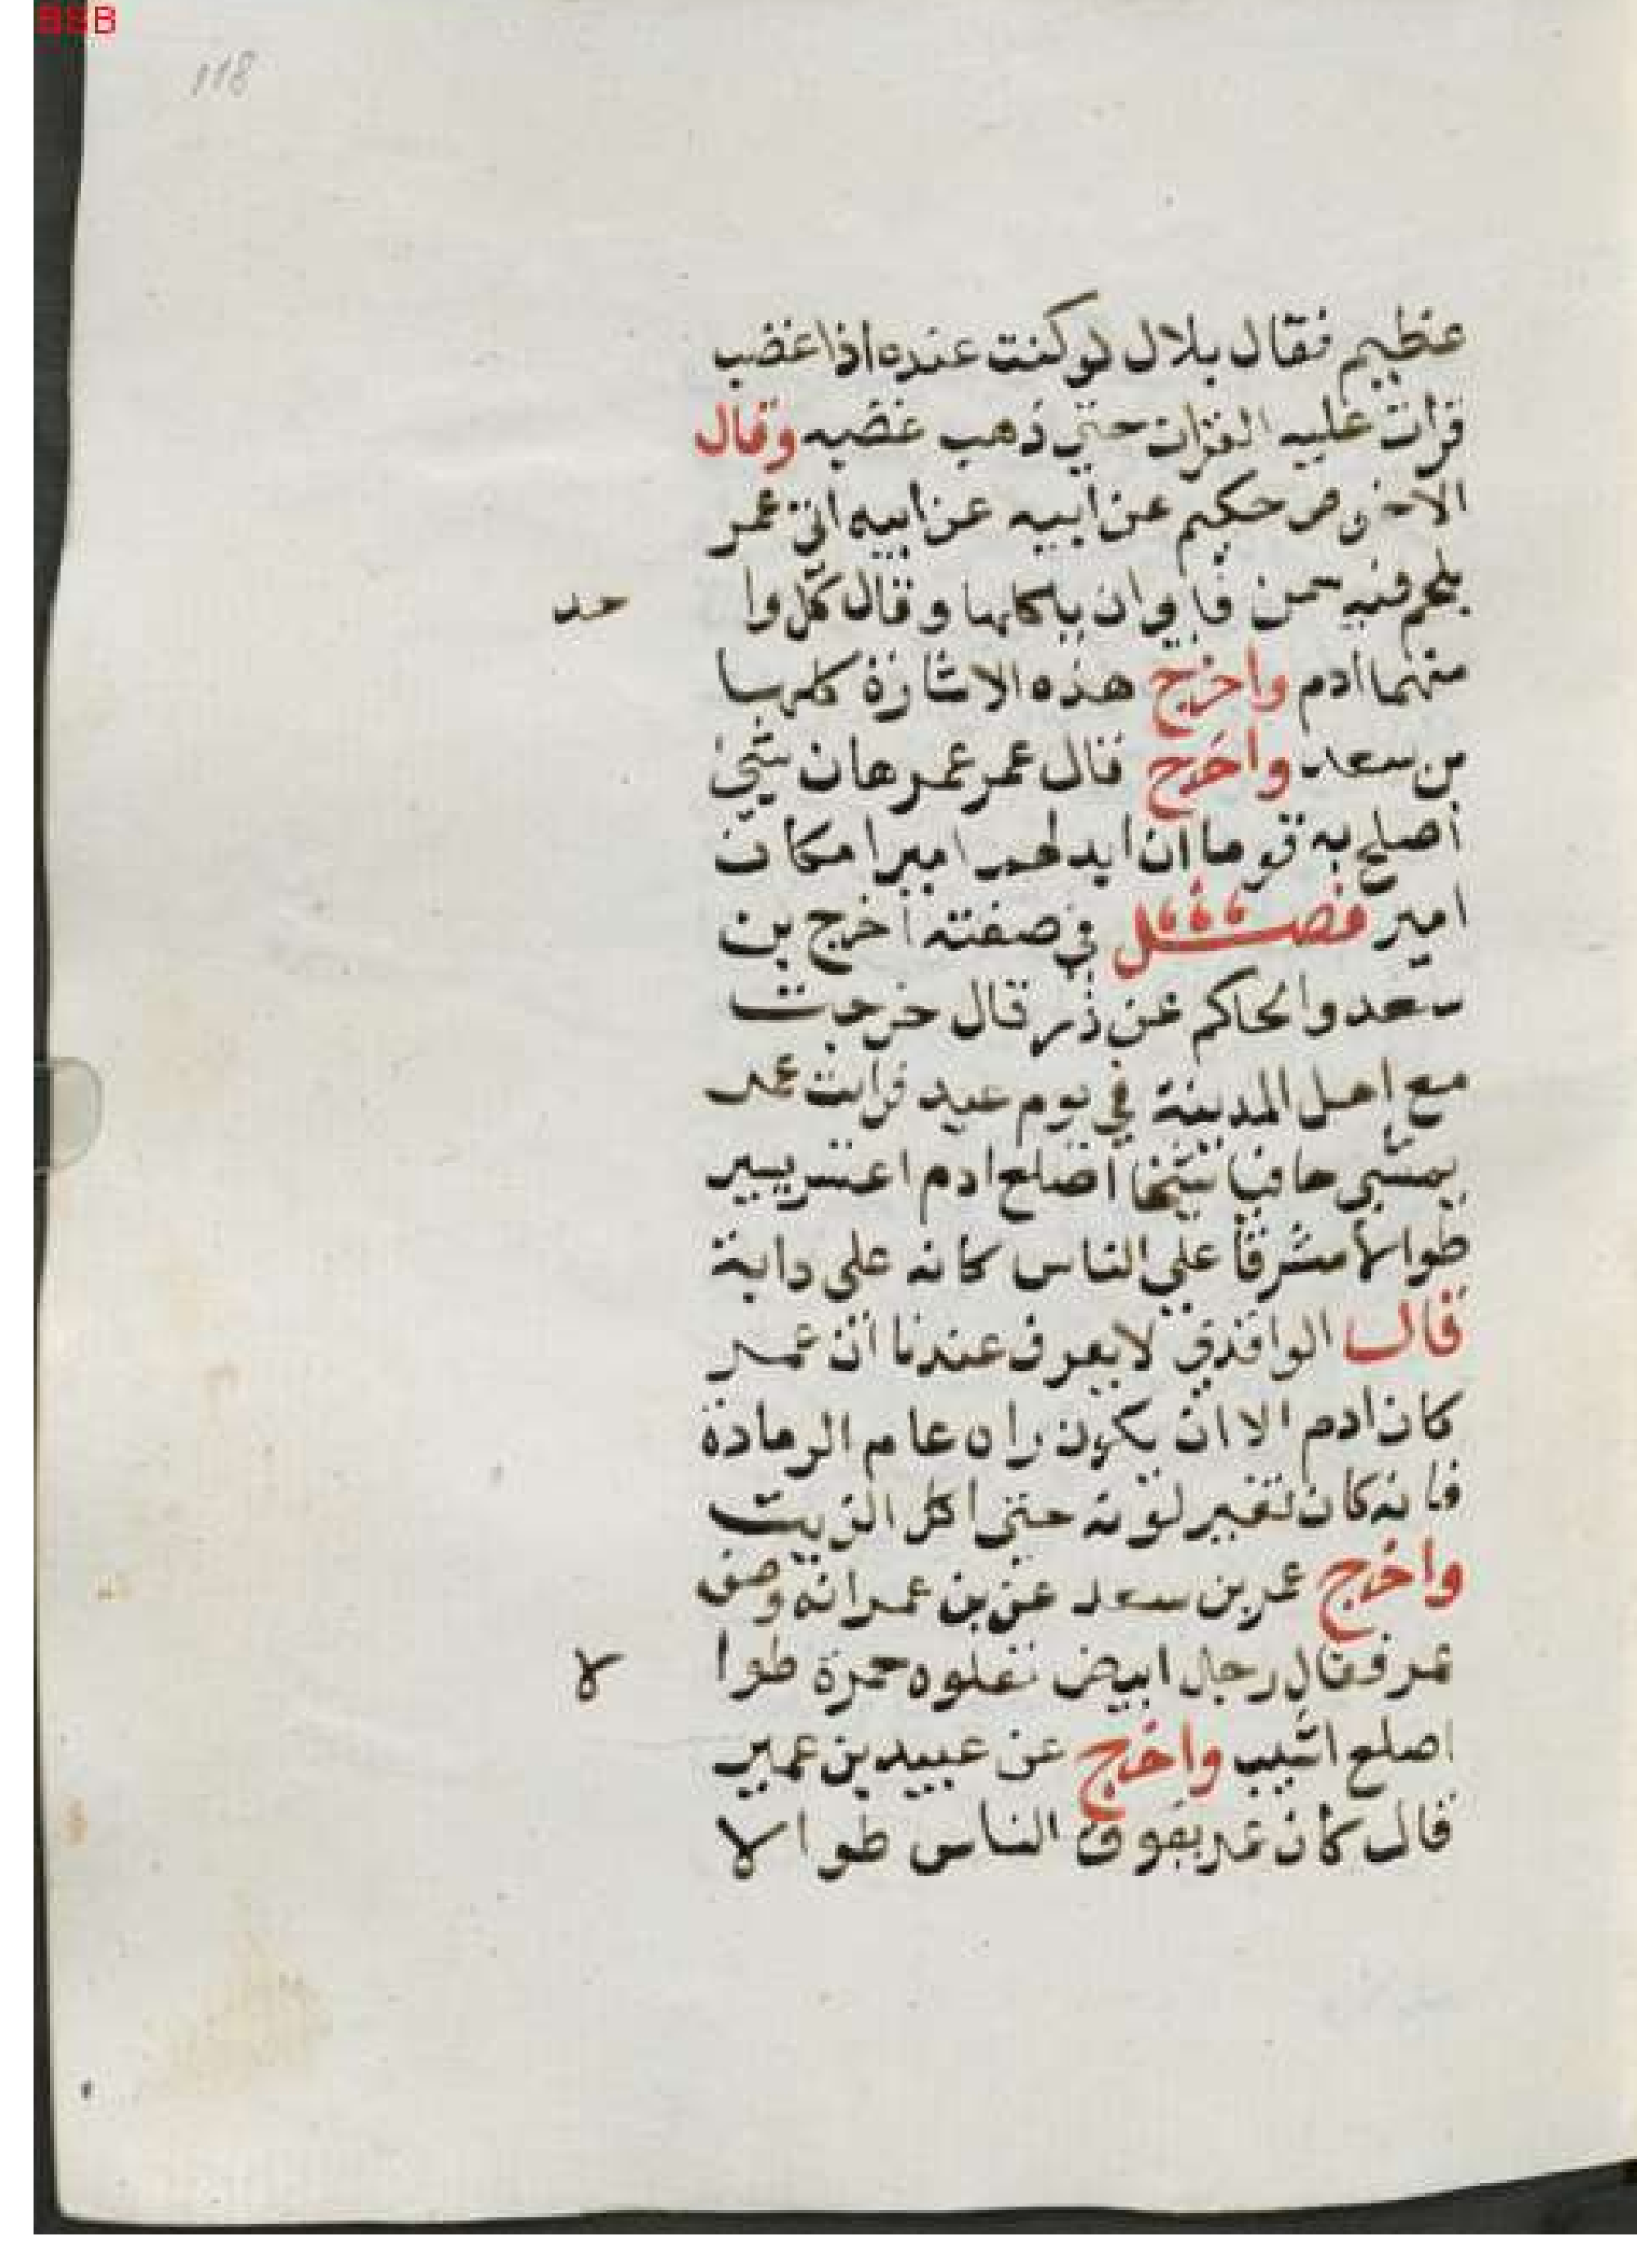 BSB
118
عظيم فقال بلال لو كنت عنده اذا غضب
قرات عليه القران حتي ذهب غضبه وقال
الاحـ حكيم عن ابيه عن ابيه اتي عمر
بلحم فيه سمن فابي ان ياكلها وقال كل وا حد
منهما ادم واخرج هذه الاثارة كلها
من سعد واخرج قال عمر عمر هان شي
اصلح به قوما ان ابدلهم اميرا مكان
امير فصل في صفته اخرج بن
سعد والحاكم عن ذر قال خرجت
مع اهل المدينة في يوم عيد فرايت عمر
يمشي حافيا شيخا اصلع ادم اعسر يسير
طوالا مشرفا علي الناس كانه علي دابة
قال الواقدي لا يعرف عندنا ان عمر
كان ادم الا ان يكون راه عام الرمادة
فانه كان تغير لونه حتي اكل الزيت
واخرج عمر بن سعد عن بن عمر انه وصف
عمر فقال رجل ابيض تعلوه حمرة طوا لا
اصلع اشيب واخرج عن عبيد بن عمير
قال كان عمر يفوق الناس طوالا